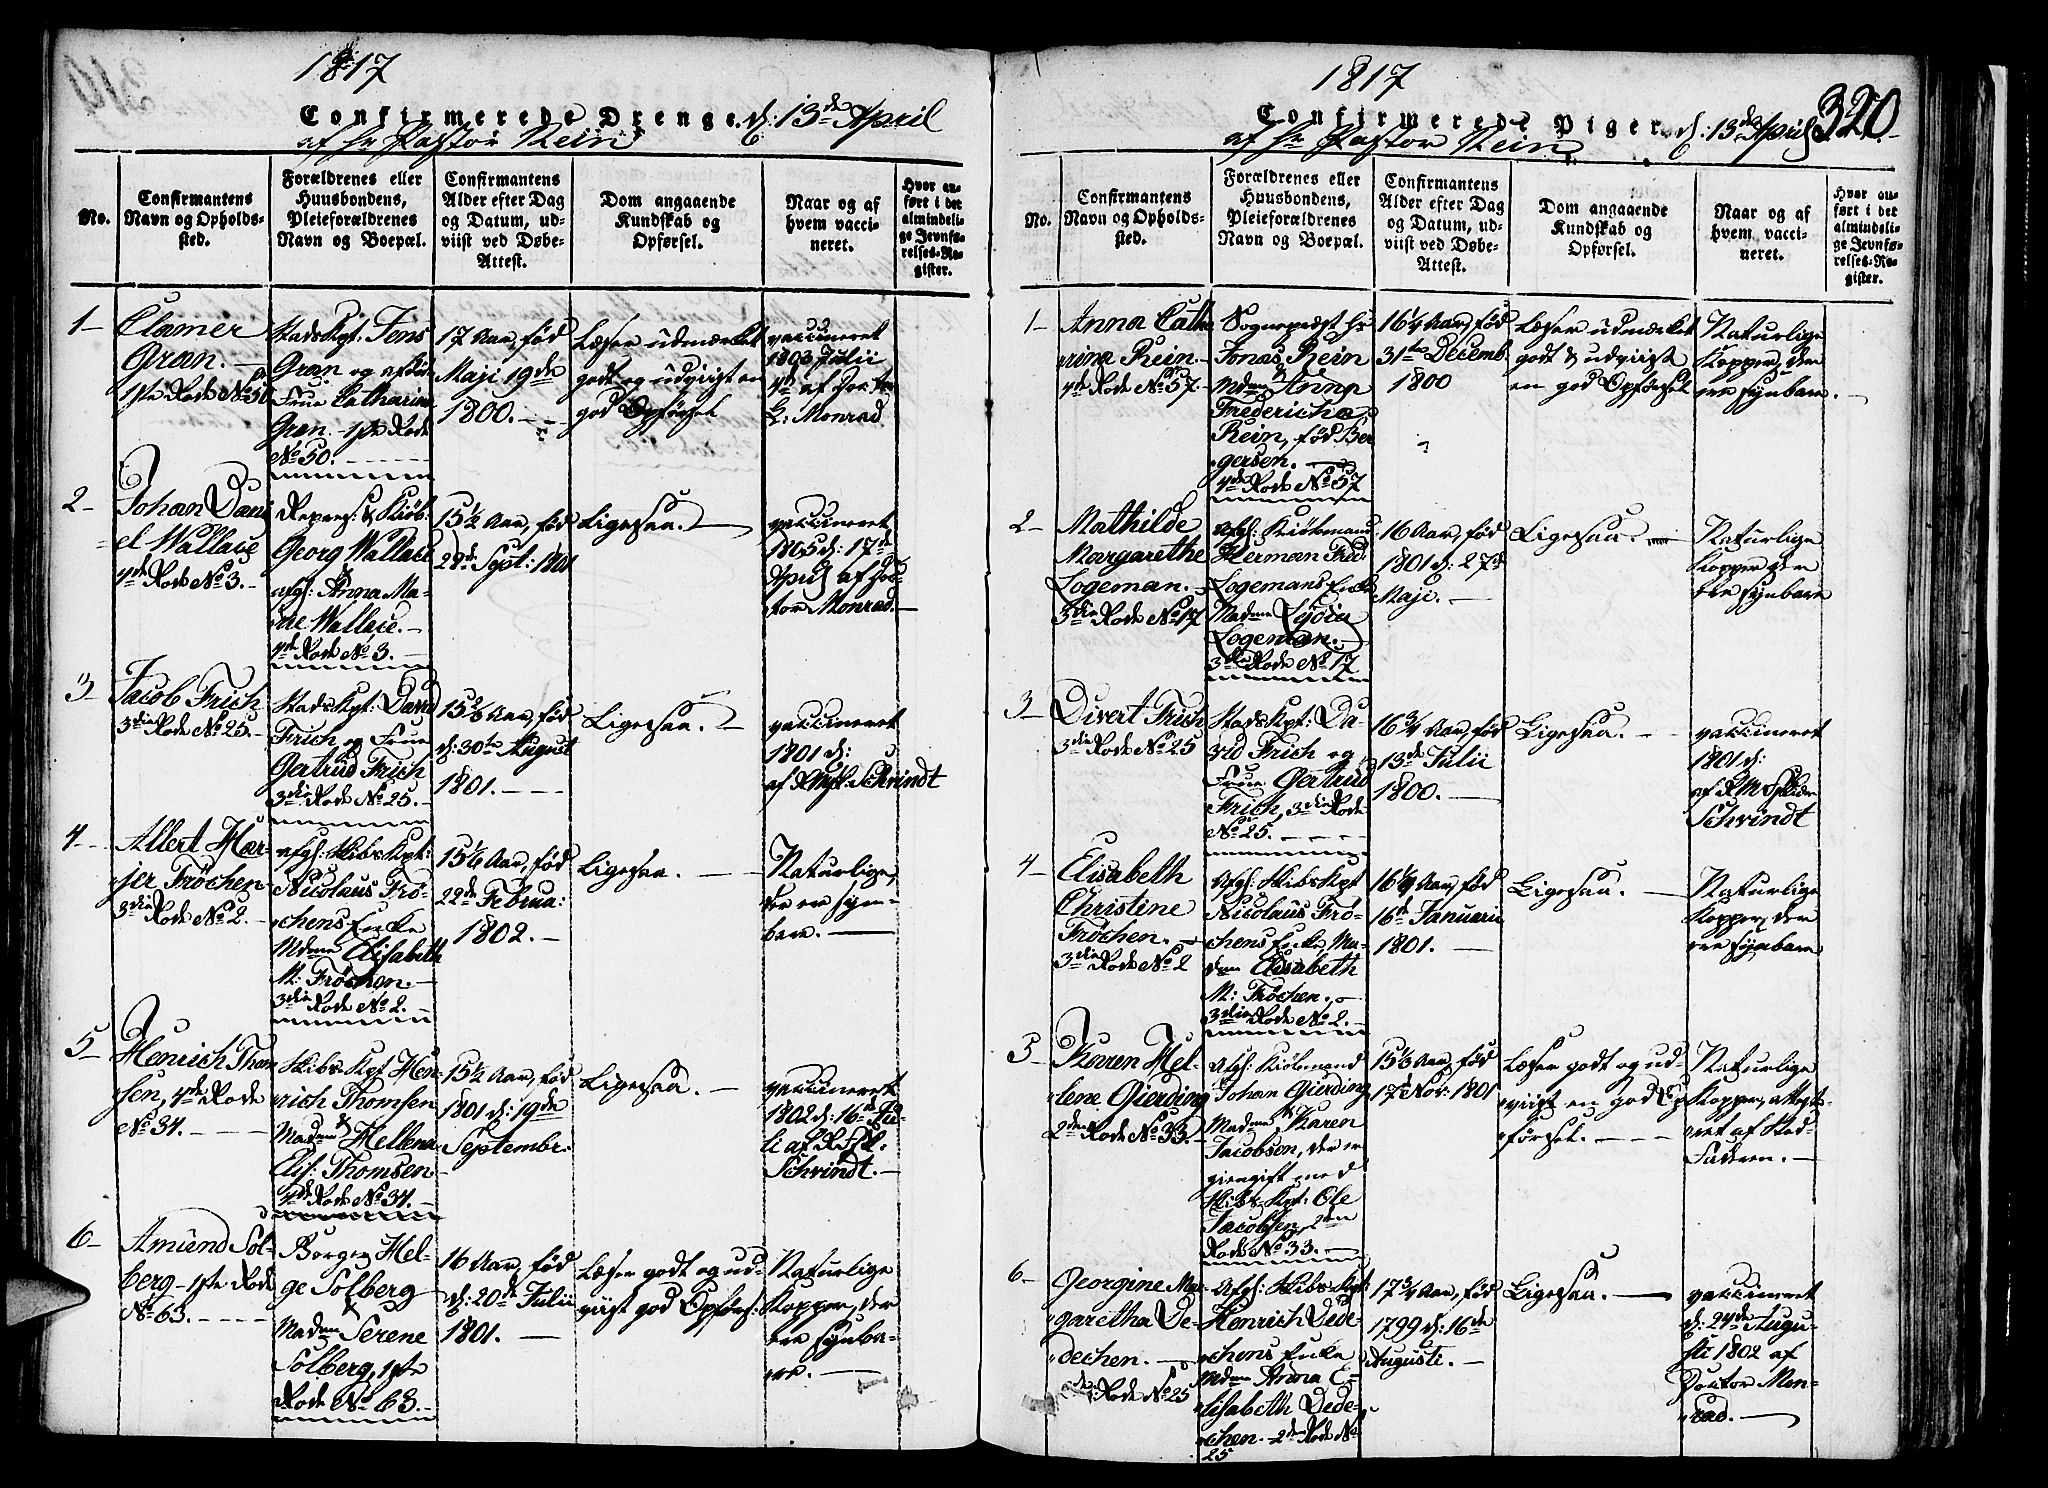 1817
Confirmerede Drenge d: 13de April
af Hr Pastor Rein
No.
Confirmantens
Navn og Opholds-
sted.
Forældrenes eller
Huusbondens,
Pleieforældrenes
Navn og Boepæl.
Confirmantens
Alder efter Dag
og Datum, ud-
viist ved Døbe-
Attest.
Dom angaaende
Kundskab og
Opførsel.
Naar og af
hvem vacci-
neret.
Hvor an-
ført i det
almindeli-
ge Jevnfø-
relses-Re-
gister.
1-
Clamer
Gran.
1ste Rode No 50
StadsKpt: Jens
Gran og
Frue Catharina
Gran. 1ste Rode
No 50.
17 Aar, fød
Maji 19de
1800.
Læser udmærket
godt og udviist en
god Opførsel
vaccineret
1803 Julii
af Doctor
Monrad
2-
Johan Dani
el Wallace
4de Rode No 3.
Repres: & Kiöb:
Georg Wallace
&
afg: Anna Ma-
rie Wallace.
4de Rode No 3.
15½ Aar, fød
28de Sept: 1801
Ligesaa.
vaccineret
1805 d: 17de
April af Doc-
tor Monrad.
3-
Jacob Frich
3die Rode No 25.
StadsKpt: David
Frich og Frue
Gertrud Frich
3die Rode No 25.
Aar, fød
d: 30te August
1801.
Ligesaa.
vaccineret
1801 d:
af Schvindt
4-
Allert Har-
jer Fröchen
3die Rode No 2.
afg: Skibs Kpt:
Nicolaus Frö-
chens Encke
Mdme Elisabeth
M: Fröchen.
3die Rode No 2.
Aar, fød
22de Februa:
1802.
Ligesaa.
Naturlige,
der er syn-
bare.
5-
Henrich Thom
sen, 4de Rode
No 34.
Skibs Kpt Hen-
rich Thomsen
&
Madme Hellena
Elis: Thomsen
4de Rode No 34.
15½ Aar, fød
1801 d: 19de
Septembr:
Ligesaa.
vaccineret
1802 d: 16de Ju-
li af
Schvindt.
6-
Amund Sol-
berg 1ste Rode
No 63.
Borger Hel-
ge Solberg
&
Madme Serene
Solberg, 1ste
Rode No 63.
16 Aar, fød
d: 20de Julii
1801.
Læser godt og ud-
viist god Opførs:
Naturlige
Kopper, der
ere synba-
re.
1817
320
Confirmerede Piger d: 13de April
af Hr Pastor Rein
No.
Confirmantens
Navn og Opholds-
sted.
Forældrenes eller
Huusbondens,
Pleieforældrenes
Navn og Boepæl.
Confirmantens
Alder efter Dag
og Datum, ud-
viist ved Døbe-
Attest.
Dom angaaende
Kundskab og
Opførsel.
Naar og af
hvem vacci-
neret.
Hvor an-
ført i det
almindeli-
ge Jevnfø-
relses-Re-
gister.
1-
Anna Catha
rina Rein.
4de Rode No 57.
Sognepræst Hr
Jonas Rein
&
Mdme Anna
Fredericha
Rein, fød Ber
gersen.
4de Rode No 57
16¼ Aar, fød
31te Decemb.
1800
Læser udmærket
godt & udviist
en god Opførsel
Naturlige
Kopper, der
ere synbare.
2-
Mathilde
Margarethe
Logeman.
3die Rode No 17
Afg: Kiöbmand
Herman Fred:
Logemans Encke
Madme Lydia
Logeman.
3die Rode No 17
16 Aar, fød
1801 d: 27de
Maji.
Ligesaa.
Naturlige
Kopper der
ere synbare
3-
Divert Frich
3die Rode No 25
StadsKpt: Da-
vid Frich og
Frue Gertrud
Frich, 3die Rode
No 25.
16¾ Aar, fød
13de Julii
1800.
Ligesaa.
vaccineret
1801 d:
af
Schvindt
4-
Elisabeth
Christine
Fröchen.
3die Rode No 2
Afg: Skibs Kpt
Nicolaus Frö-
chens Encke, Ma-
dme Elisabeth
M: Fröchen.
3die Rode No 2.
Aar, fød
16de Januarii
1801.
Ligesaa.
Naturlige
Kopper, der
ere synbare
5-
Karen Hel-
lene Gierding
2den Rode No 33.
Afg: Kiöbmand
Johan Gierding
&
Madme Karen
Jacobsen, der er
giengift med
Skibs Kpt: Ole
Jacobsen, 2den
Rode No 33.
Aar, fød
17d Nov: 1801
Læser godt og ud-
viist en god Op
førsel.
Naturlige
Kopper, attest-
eret af Sted-
Faderen.
6-
Georgine Mar-
garetha De-
dechen.
2de: Rode No 25
Afg: Skibs Kpt:
Henrich Dede-
chens Encke
Mdme Anna E-
lisabeth Dede-
chen. 2den Rode No
25
17¾ Aar, fød
1799 d: 16de
Augusti.
Ligesaa.
vaccineret
d: 24de Augu-
sti 1802 af
Doctor Mon-
rad.